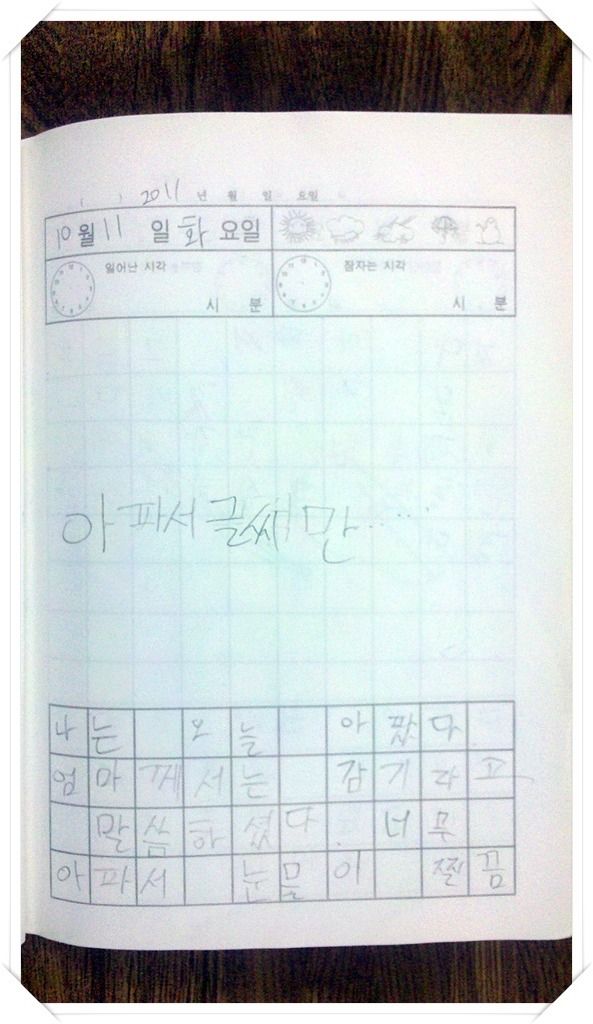 2011 년 월 일 요일
10월 11 일 화 요일
일어난 시각 잠자는 시각
시 분 시 분
아파서 글씨만......
나는 오늘 아팠다
엄마께서는 감기라고
말씀하셨다. 너무
아파서 눈물이 찔끔